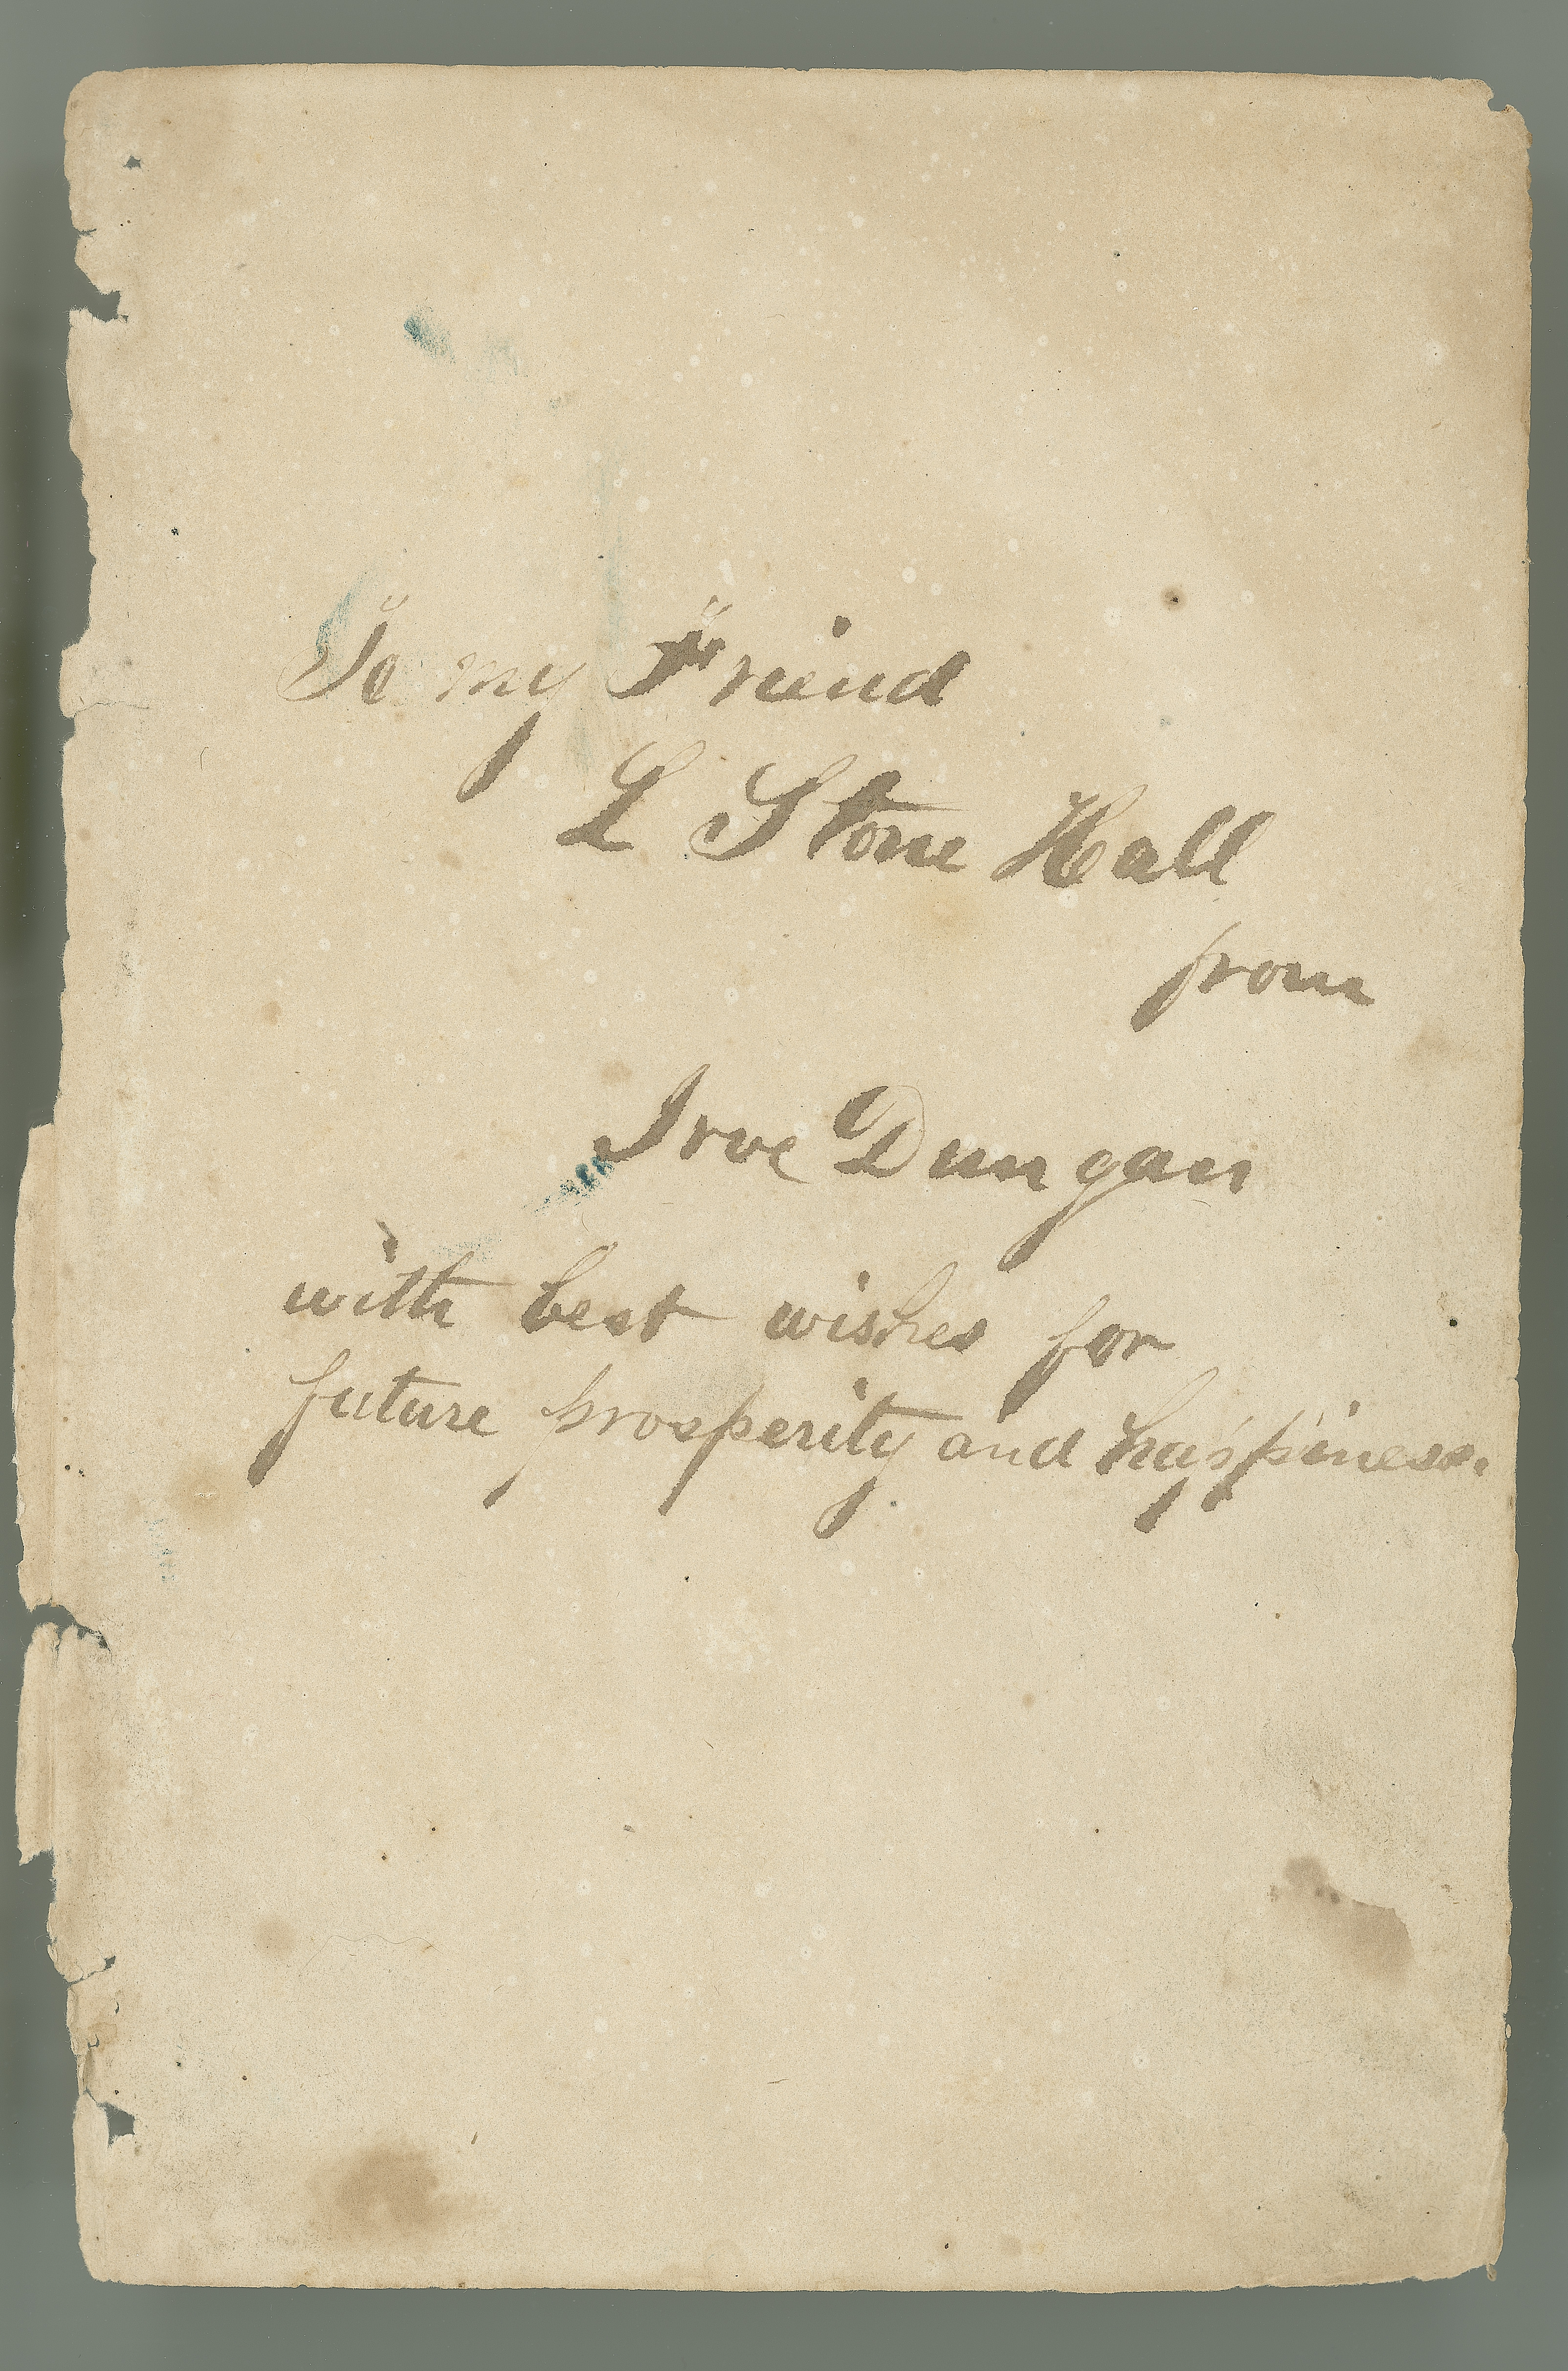 To my Friend
L Stone Hall
from
Irve Dungan
with best wishes for
future prosperity and happiness.